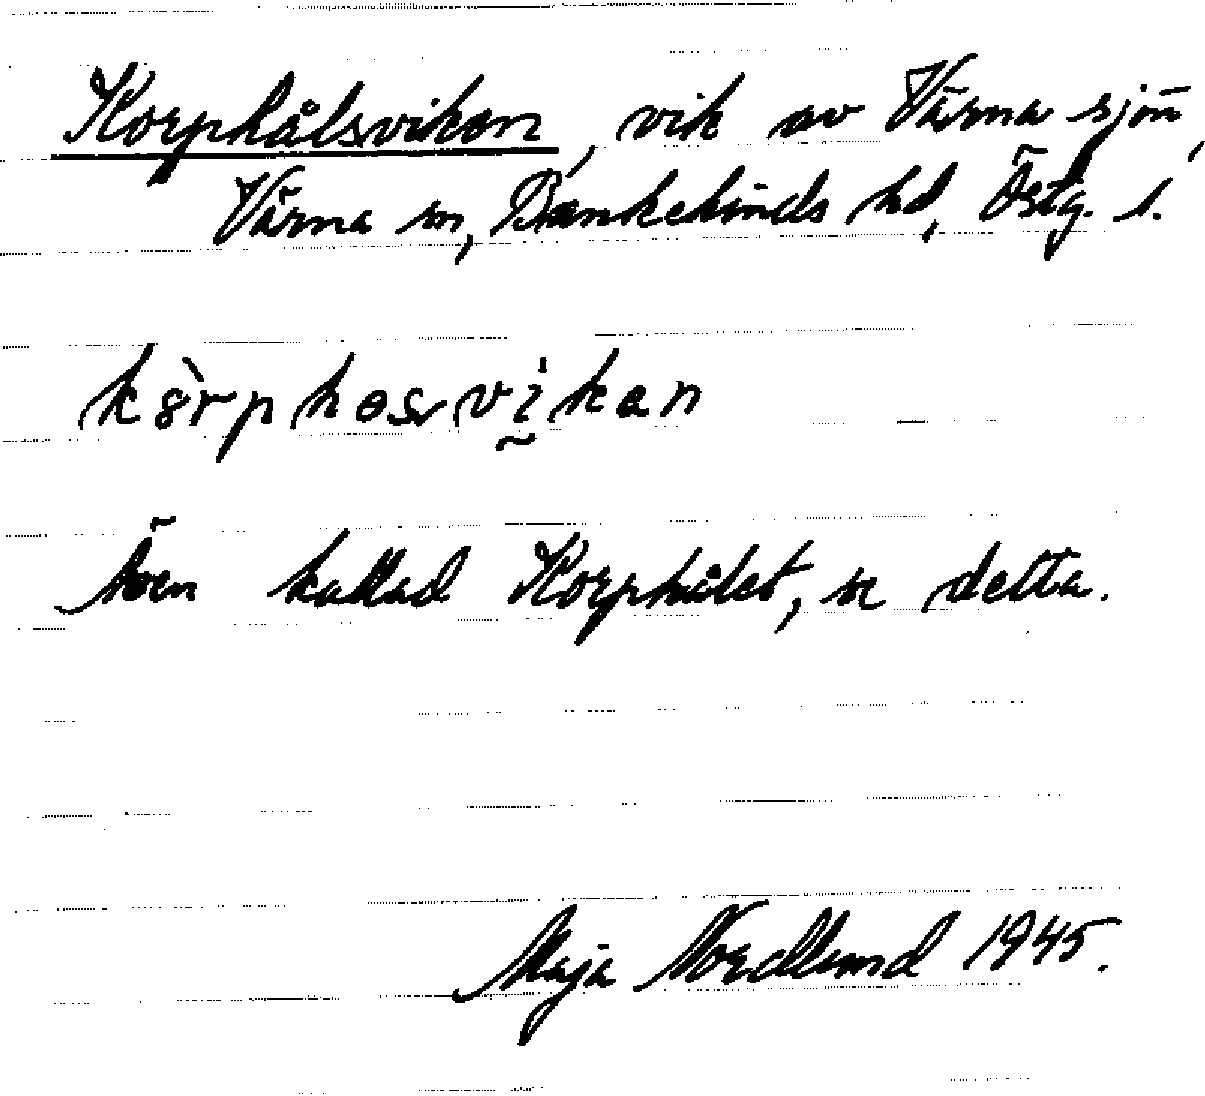 Korphålsviken, vik av Värna sjön,
Värna sn, Bankekinds hd, Östg. l.
Även kallad Korphålet, se detta.
Maja Nordlund 1945.